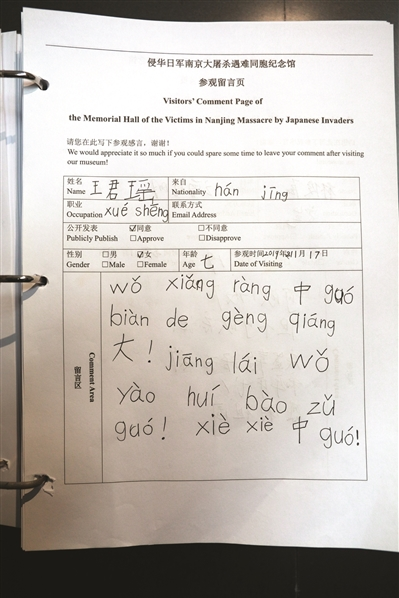 侵华日军南京大屠杀遇难同胞纪念馆
参观留言页
Visitors' Comment Page of
the Memorial Hall of the Victims in Nanjing Massacre by Japanese Invaders
请您在此写下参观感言，谢谢！
We would appreciate it so much if you could spare some time to leave your comment after visiting
our museum!
姓名 Name 王君瑶 来自 Nationality hán jīng
职业 Occupation xué shēng 联系方式 Email Address
公开发表 ☑同意 □不同意
Publicly Publish □Approve □Disapprove
性别 □男 ☑女 年龄 七 参观时间2019年11月17日
Gender □Male □Female Age Date of Visiting
留言区 Comment Area
wǒ xiǎng ràng 中 guó
biàn de gèng qiáng
大！jiāng lái wǒ
yào huí bào zǔ
guó！xiè xiè 中 guó！